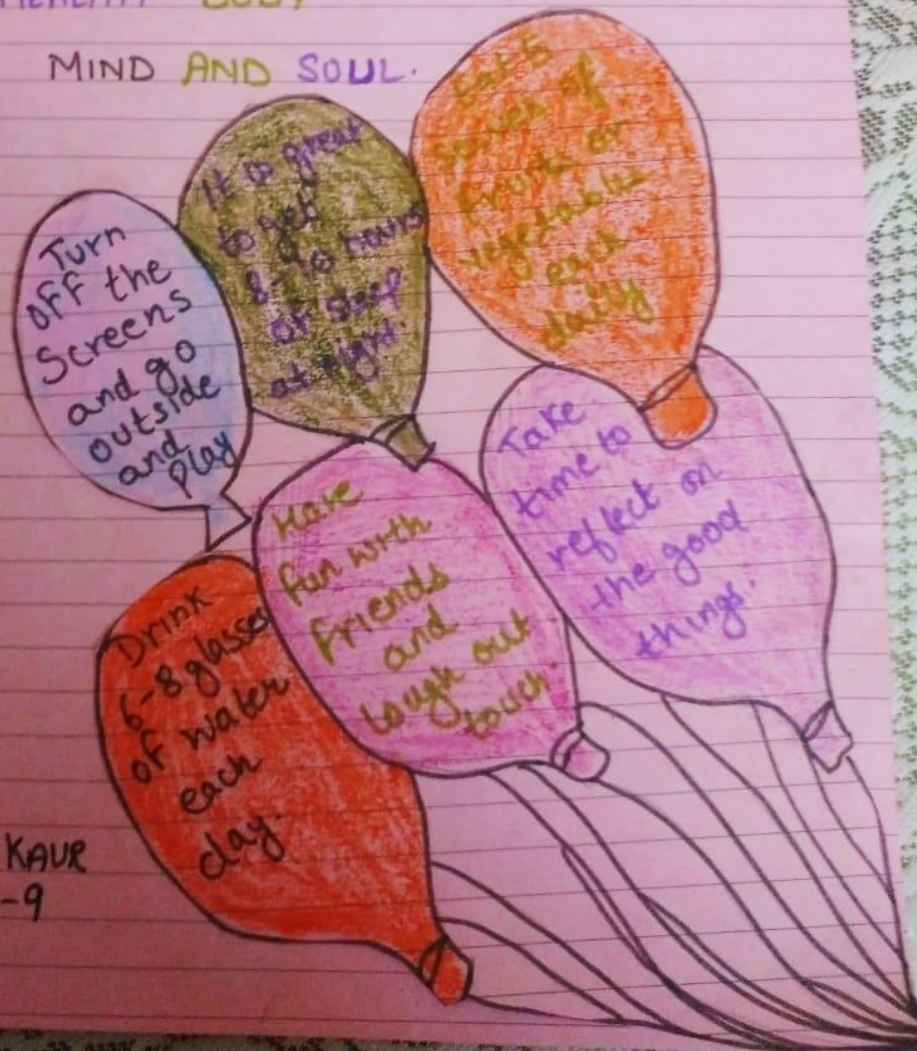 HEALTHY BODY
MIND AND SOUL.
Turn
OFF the
Screens
and go
outside
and
Play
It is great
to get
8-10 hours
of sleep
at night.
Eat 5
serves of
fruits or
vegetables
each
daily
Take
time to
reflect on
the good
things.
Have
fun with
friends
and
laugh out
touch
Drink
6-8 glasses
of water
each
day.
KAUR
-9